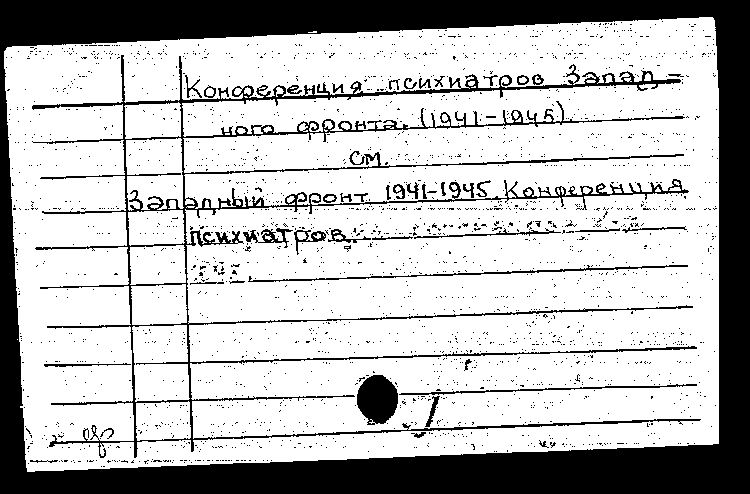 Конференция психиатров Запад=
ного фронта. (1941-1945)
см.
Западный фронт 1941-1945 Конференция
психиатров.